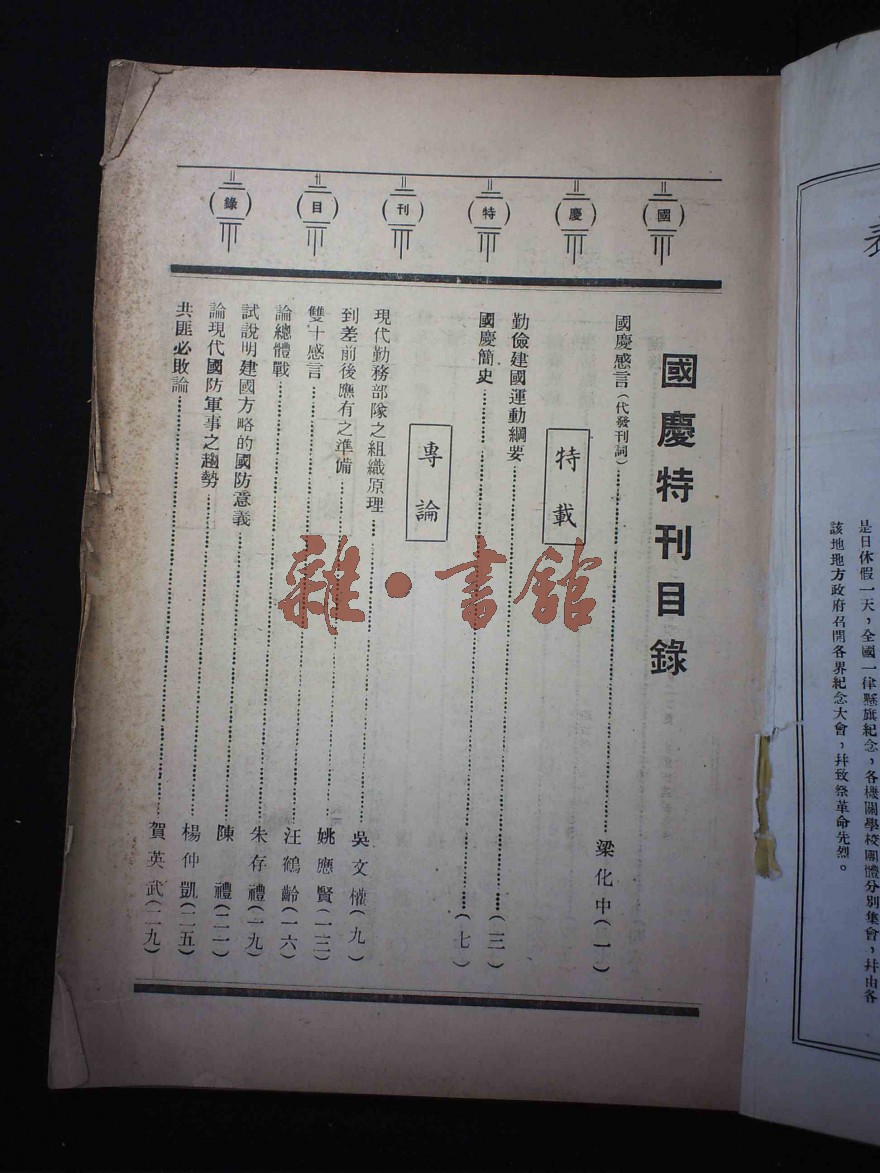 是日休假一天，全國一律懸旗紀念，各機關學校團體分別集會，幷由各
該地地方政府召開各界紀念大會，幷致祭革命先烈。
國慶特刊目錄
國慶特刊目錄
國慶感言（代發刊詞）……梁化中（一）
特載
勤儉建國運動綱要……（三）
國慶簡史……（七）
專論
現代勤務部隊之組織原理……吳文權（九）
到差前後應有之準備……姚應賢（一三）
雙十感言……汪鶴齡（一六）
論總體戰……朱存禮（一九）
試說明建國方略的國防意義……陳禮（二一）
論現代國防軍事之趨勢……楊仲凱（二五）
共匪必敗論……賀英武（二九）
雜·書館